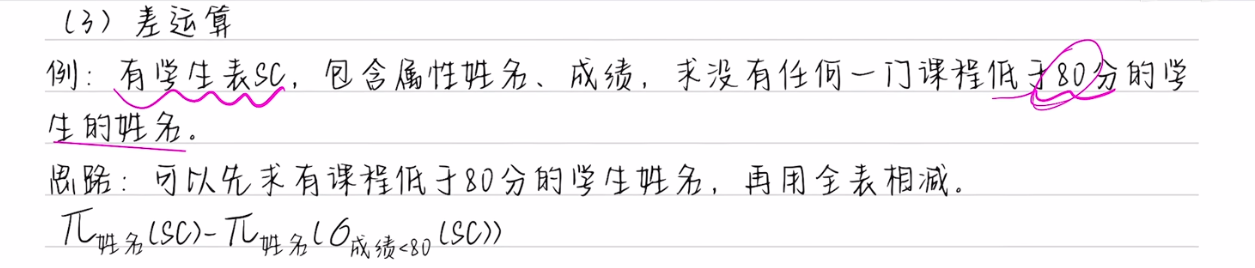 (3) 差运算
例: 有学生表SC, 包含属性姓名、成绩, 求没有任何一门课程低于80分的学
生的姓名。
思路: 可以先求有课程低于80分的学生姓名, 再用全表相减。
π姓名(SC)-π姓名(σ成绩<80(SC))